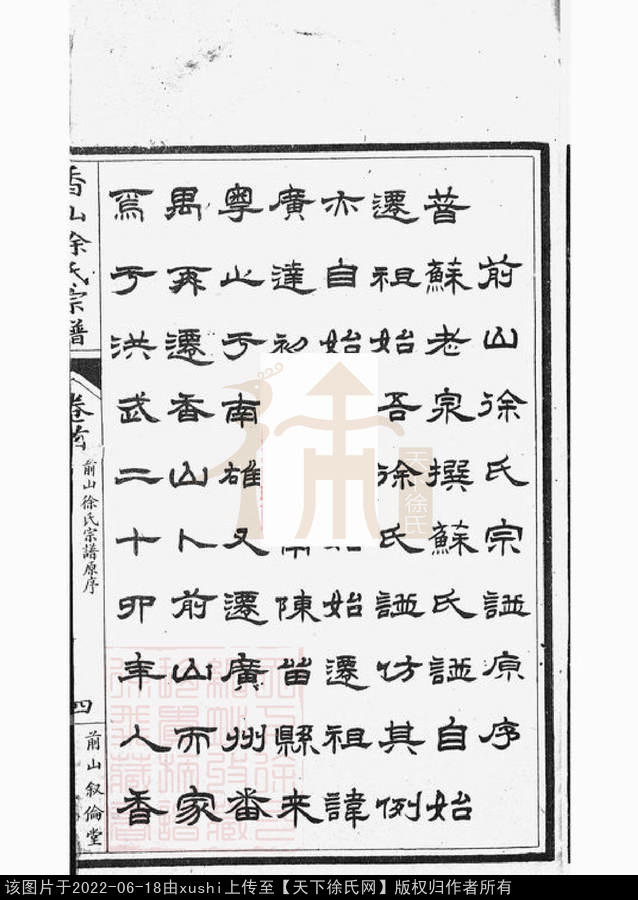 前山徐氏宗譜原序
昔蘇老泉撰蘇氏譜自始
遷祖始吾徐氏譜仿其例
亦自始始遷祖諱
廣達初南陳留縣來
粤止于南雄又遷廣州番
禺再遷香山卜前山而家
焉于洪武二十卯年入香
香山徐氏宗譜
卷首
前山徐氏宗譜原序
四
前山叙倫堂
天下徐氏
该图片于2022-06-18由xushi上传至【天下徐氏网】版权归作者所有